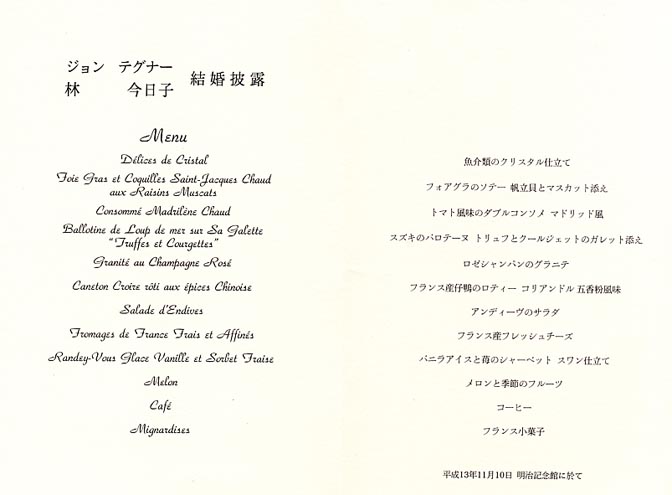 ジョン テグナー
林 今日子 結婚披露
Menu
Délices de Cristal
Foie Gras et Coquilles Saint-Jacques Chaud
aux Raisins Muscats
Consommé Madrilène Chaud
Ballotine de Loup de mer sur Sa Galette
"Truffes et Courgettes"
Granité au Champagne Rosé
Caneton Croire rôti aux épices Chinoise
Salade d'Endives
Fromages de France Frais et Affinés
Randey-Vous Glace Vanille et Sorbet Fraise
Melon
Café
Mignardises
魚介類のクリスタル仕立て
フォアグラのソテー 帆立貝とマスカット添え
トマト風味のダブルコンソメ マドリッド風
スズキのバロテーヌ トリュフとクールジェットのガレット添え
ロゼシャンパンのグラニテ
フランス産仔鴨のロティー コリアンドル五香粉風味
アンディーヴのサラダ
フランス産フレッシュチーズ
バニラアイスと苺のシャーベット スワン仕立て
メロンと季節のフルーツ
コーヒー
フランス小菓子
平成13年11月10日 明治記念館に於て